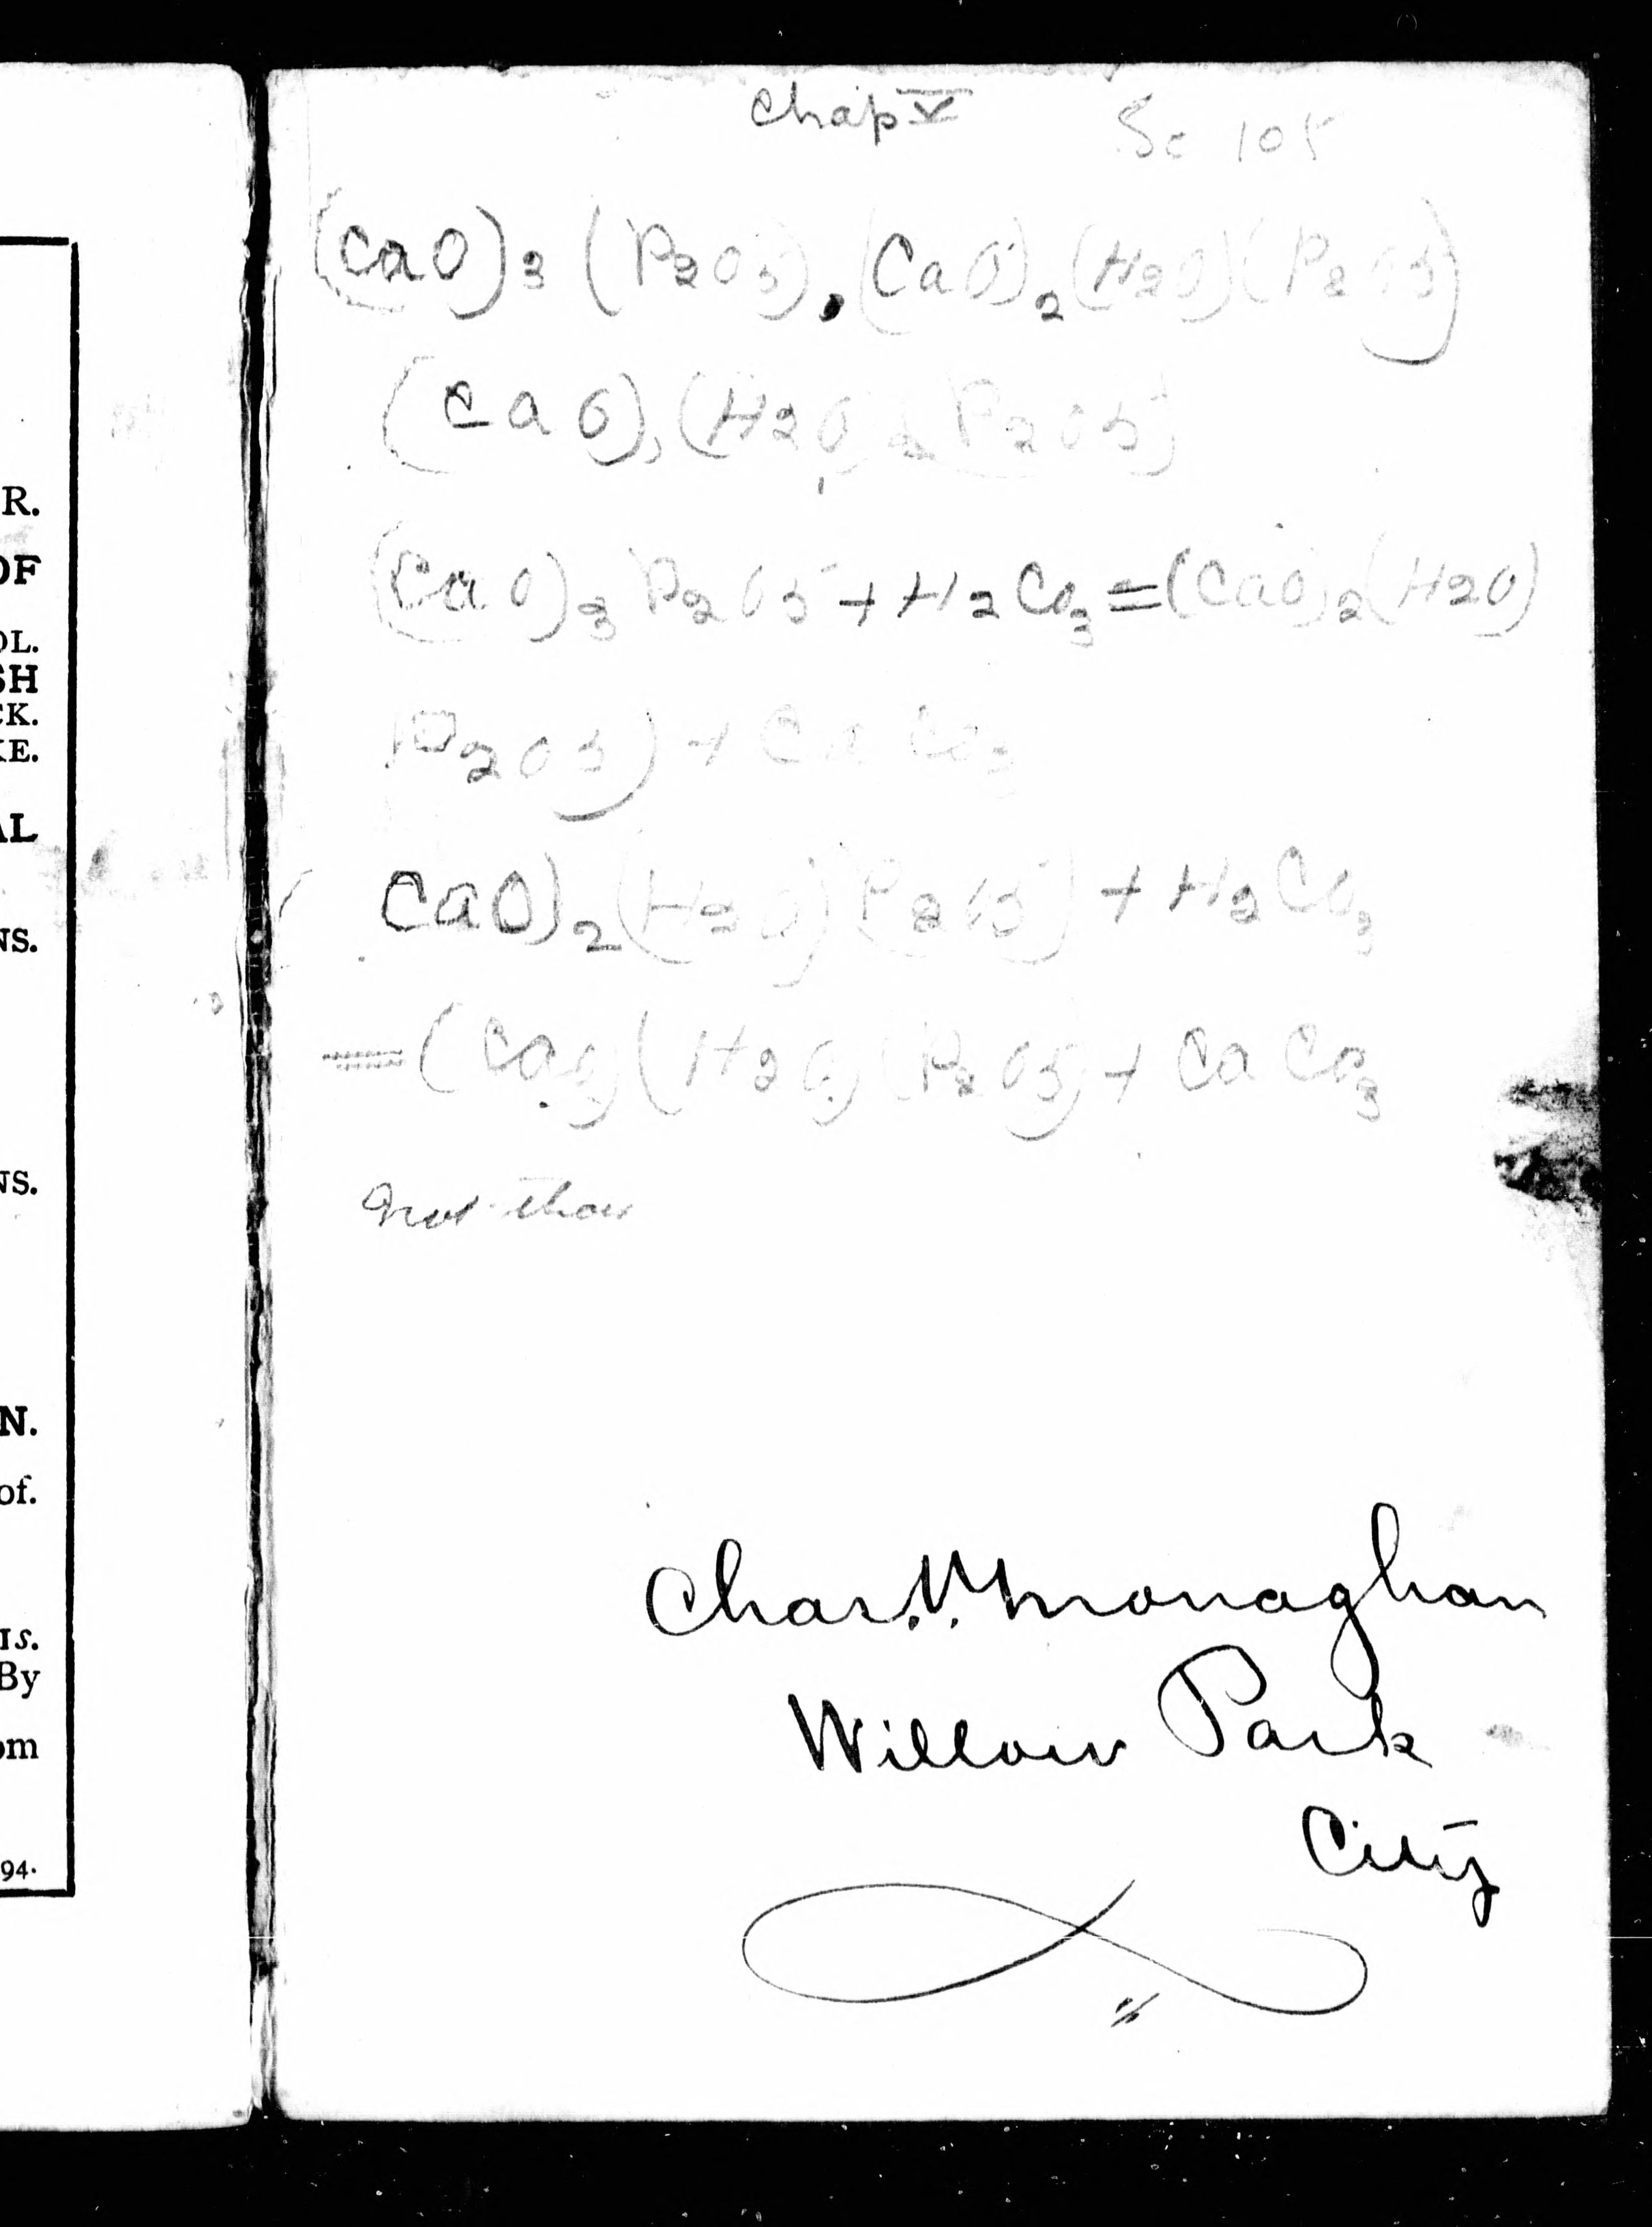 R.
OF
OL.
SH
CK.
KE.
AL
NS.
NS.
N.
of.
IS.
By
om
94.
Chap V Se 105
(CaO)3 (P2O5), (CaO)2 (H2O) (P2O5)
(CaO), (H2O)2 P2O5)
(CaO)3 P2O5 + H2Co3 = (CaO)2 (H2O)
P2O5) + Ca Co3
CaO)2 (H2O) (P2O5) + H2Co3
= (CaO) (H2O) (P2O5) + Ca Co3
Chas. V. Monaghan
Willow Park
City